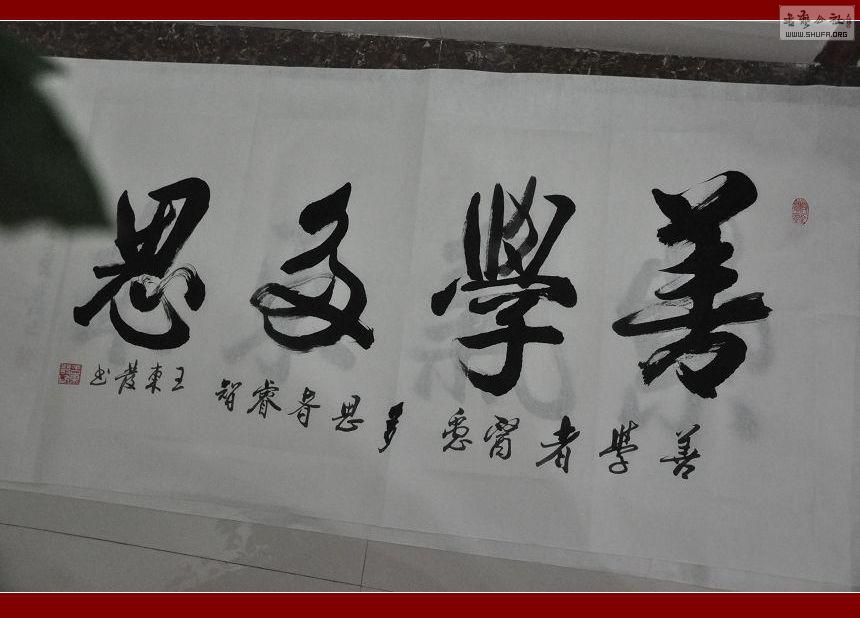 善學多思
善學者惠多思者睿智
王東书
书艺公社
WWW.SHUFA.ORG